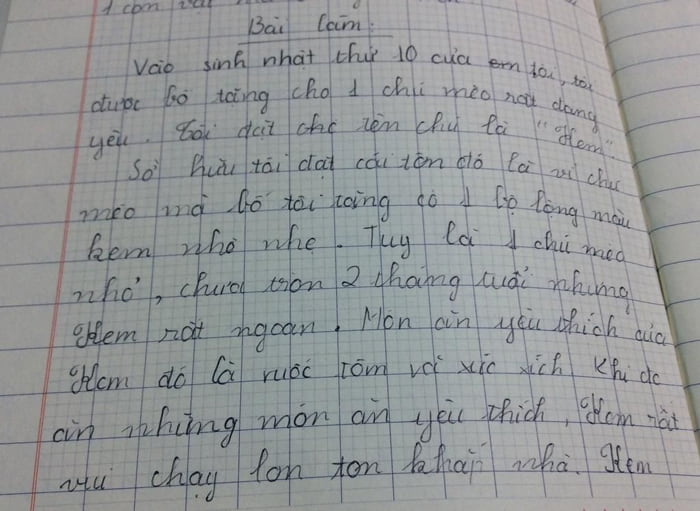 1 con vật
Bài làm:
Vào sinh nhật thứ 10 của em tôi, tôi
được bố tặng cho 1 chú mèo rất đáng
yêu. Tôi đặt cho tên chú là "Hem".
Sở hữu tôi đặt cái tên đó là vì chú
mèo mà bố tôi tặng có 1 bộ lông màu
kem nhỏ nhẹ. Tuy là 1 chú mèo
nhỏ, chưa tròn 2 tháng tuổi nhưng
Hem rất ngoan. Món ăn yêu thích của
Hem đó là ruốc tôm với xúc xích khi đc
ăn những món ăn yêu thích, Hem rất
vui chạy lon ton khắp nhà. Hem